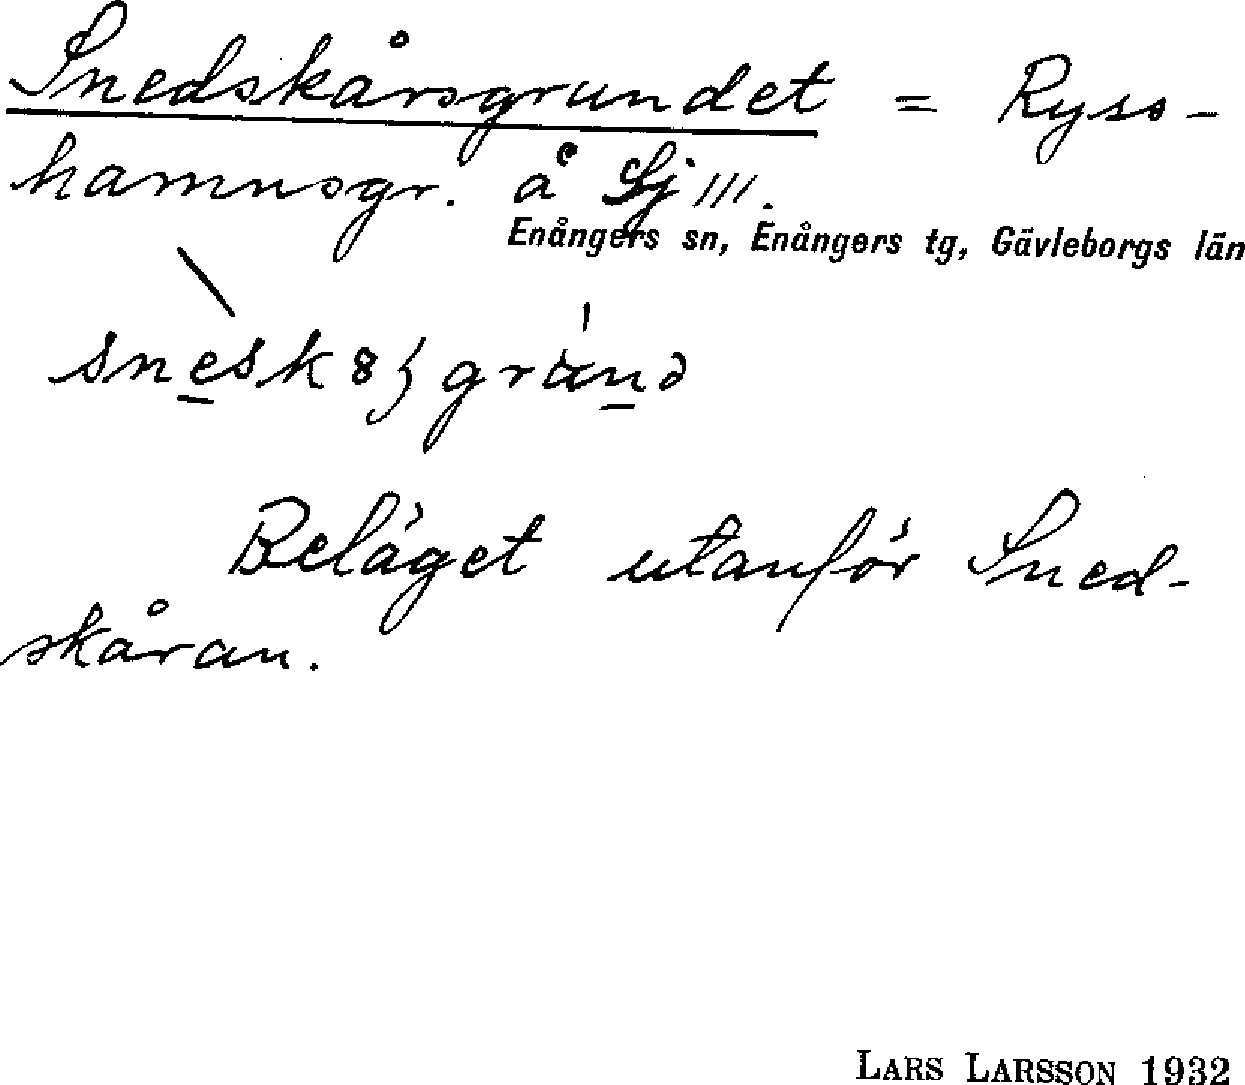 Snedskårsgrundet = Ryss-
hamnsgr. å Sj III.
Enångers sn, Enångers tg, Gävleborgs län
Beläget utanför Sned-
skåran.
LARS LARSSON 1932